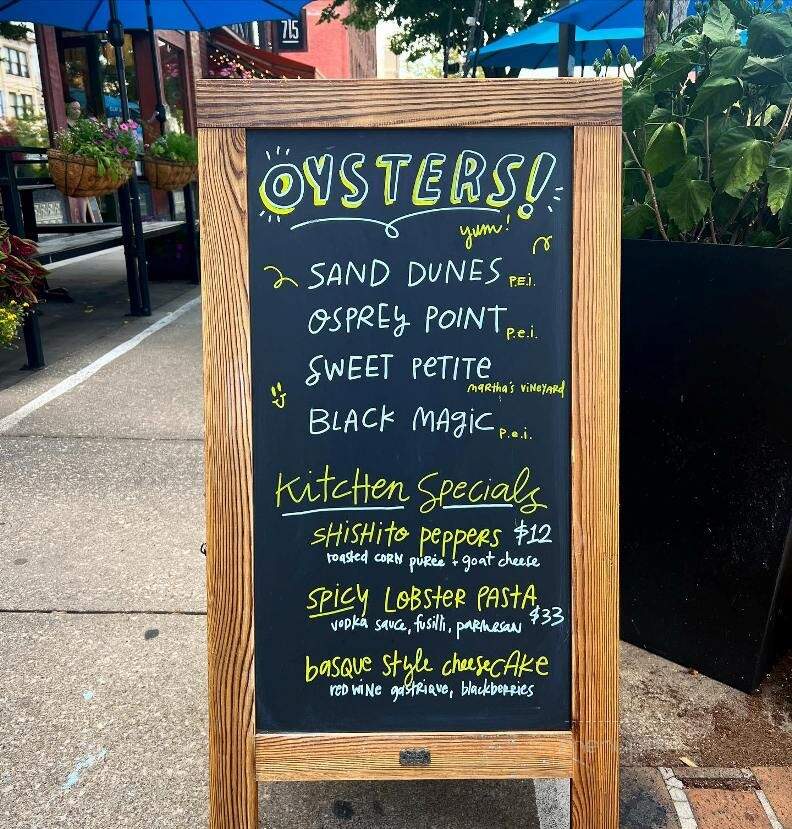 715
OYSTERS!
yum!
SAND DUNES P.E.i.
OSPREY POINT P.e.i.
SWEET PETITE
MARtha's ViNEYARD
BLACK MAGiC P.e.i.
KitcHen Specials
SHiSHito peppers $12
roasted CORN purée + goat cheese
SPICY LOBSTER PASTA
$33
VODKA sauce, fusilli, PARMesan
basque Style cheeseCAKe
red WiNe gastrique, blackberries